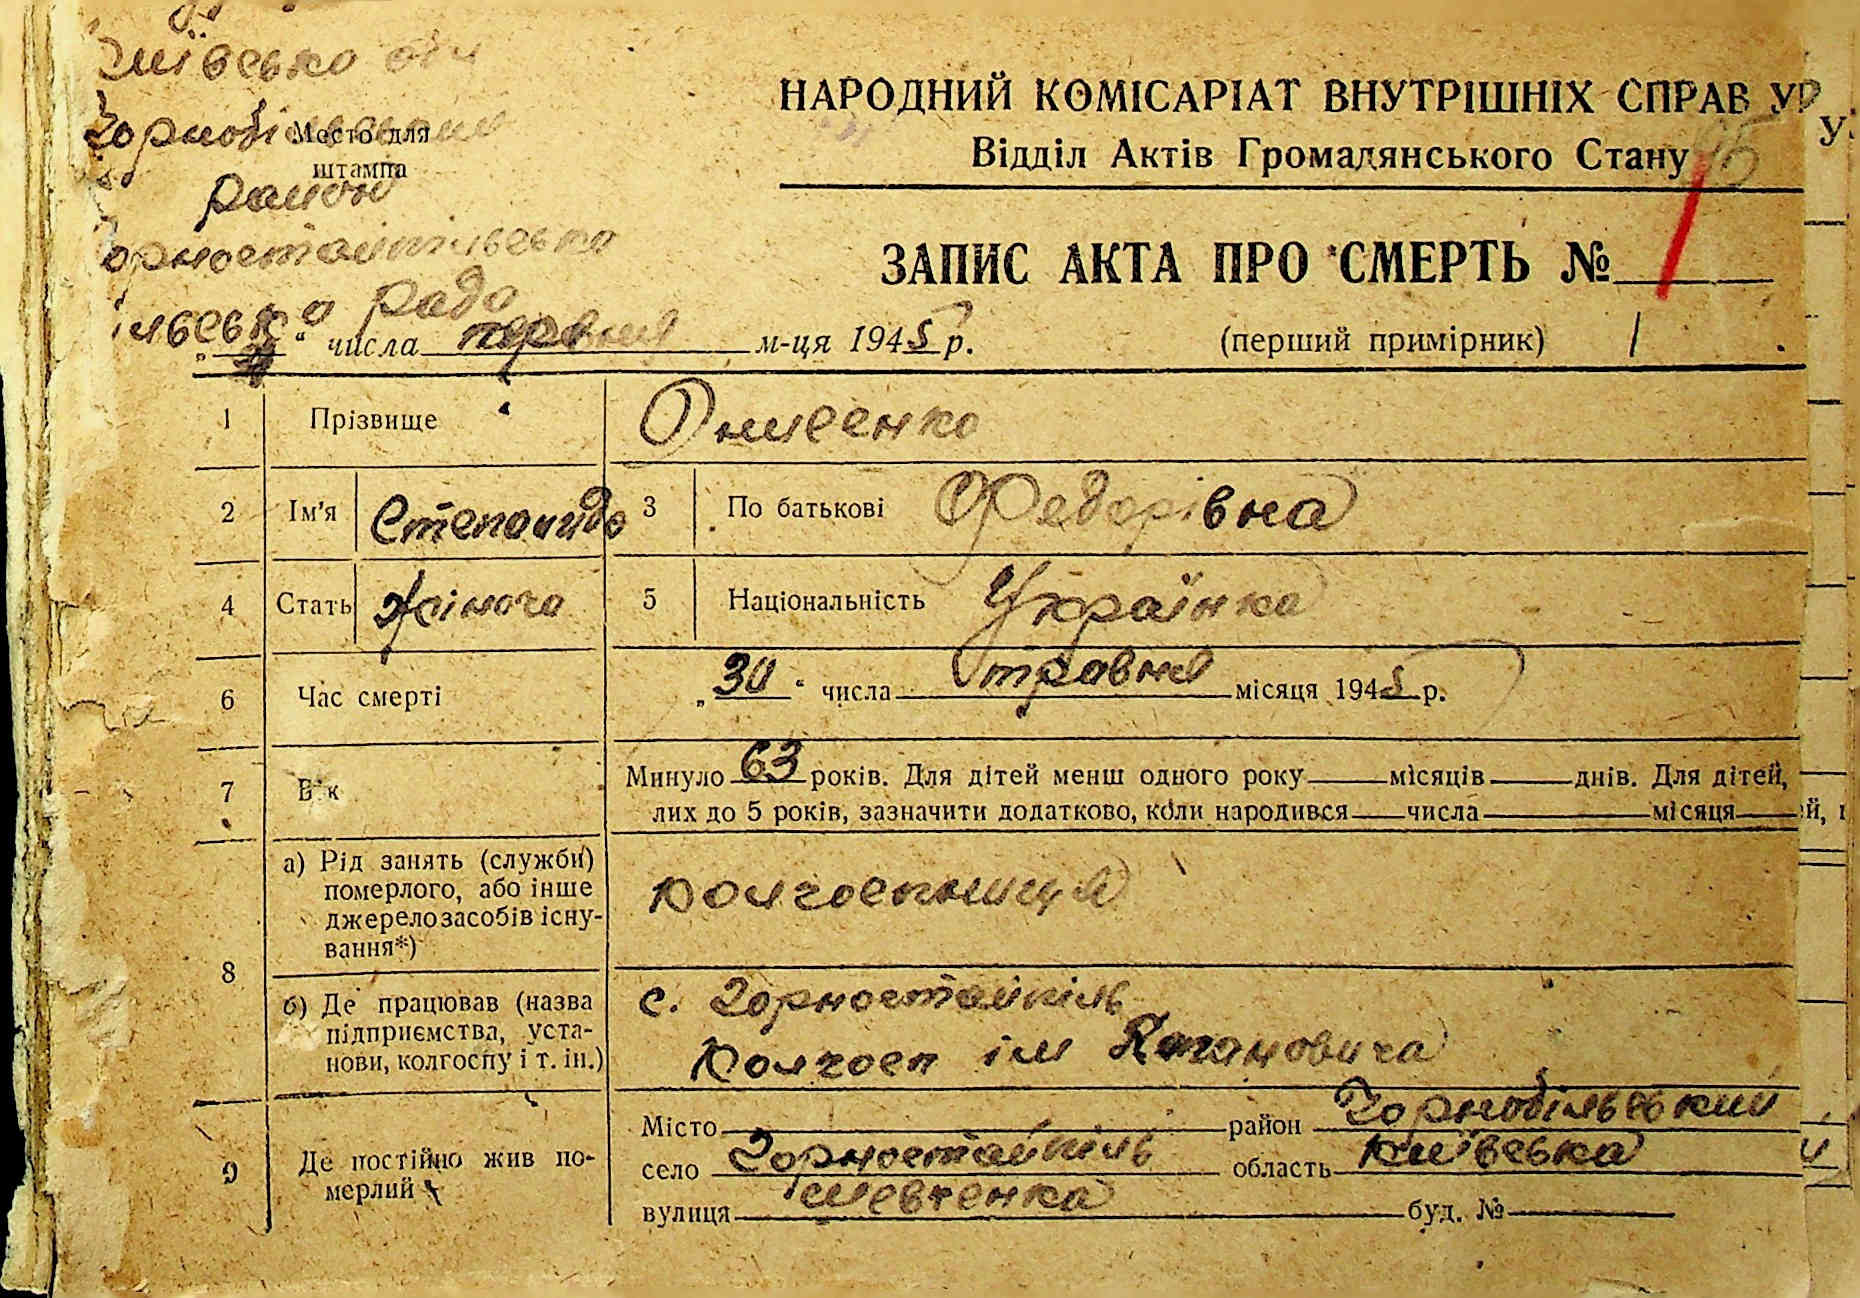 Київсько обл
Чорнобільський
Место для
штампа
район
Горностайпільсько
сільсько рада
НАРОДНИЙ КОМІСАРІАТ ВНУТРІШНІХ СПРАВ УР
Відділ Актів Громадянського Стану
ЗАПИС АКТА ПРО СМЕРТЬ №
„ “ числа червня м-ця 1945 р.
(перший примірник) 1
1 Прізвище Онисенко
2 Ім'я Степанида 3 По батькові Федорівна
4 Стать жіноча 5 Національність Українка
6 Час смерті „30“ числа травня місяця 1945 р.
7 Вік Минуло 63 років. Для дітей менш одного року місяців днів. Для дітей,
лих до 5 років, зазначити додатково, коли народився числа місяця
8 а) Рід занять (служби)
померлого, або інше
джерело засобів існу-
вання*)
колгоспниця
б) Де працював (назва
підприємства, уста-
нови, колгоспу і т. ін.)
с. Горностайпіль
Колгосп ім Кагановича
9 Де постійно жив по-
мерлий
Місто район Чорнобільський
село Горностайпіль область Київська
вулиця Шевченка буд. №